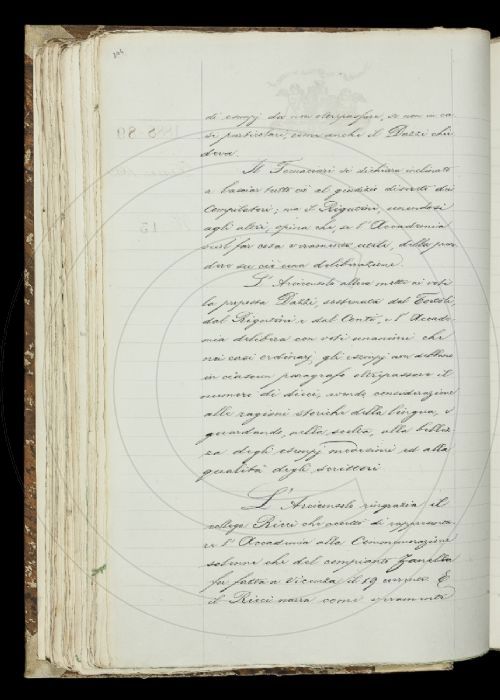 di esempj da non oltrepassare, se non in ca
si particolari, come anche il Dazzi chie
deva.
Il Fornaciari si dichiara inclinato
a lasciar tutto ciò al giudizio discreto dei
Compilatori; ma il Rigutini, unendosi
agli altri, opina che, se l'Accademia
vuol far cosa veramente utile, debba pren
dere su ciò una deliberazione.
L'Arciconsolo allora mette ai voti
la proposta Dazzi, sostenuta dal Tortoli,
dal Rigutini e dal Conti, e l'Accade-
mia delibera con voti unanimi che
nei casi ordinarj gli esempj non debbano
in ciascun paragrafo oltrepassare il
numero di dieci, avendo considerazione
alle ragioni storiche della lingua, e
guardando, nella scelta, alla bellez
za degli esempj medesimi ed alla
qualità degli scrittori.
L'Arciconsolo ringrazia il
collega Ricci che accettò di rappresenta
re l'Accademia alla Commemorazione
solenne che del compianto Zanella
fu fatta a Vicenza il 19 E
il Ricci narra come veramente